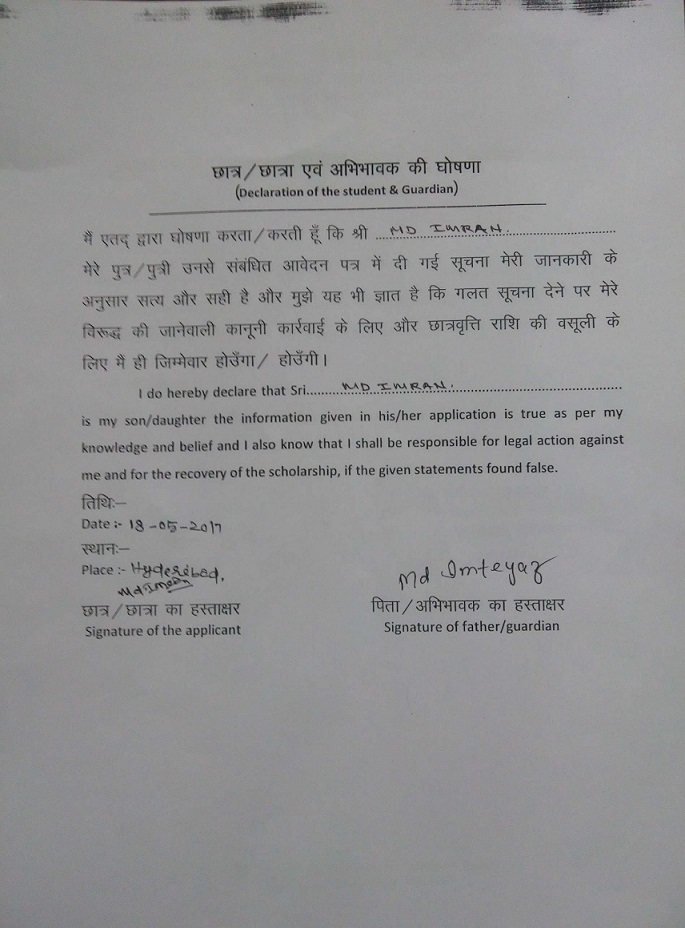 छात्र/छात्रा एवं अभिभावक की घोषणा
(Declaration of the student & Guardian)
मैं एतद् द्वारा घोषणा करता/करती हूँ कि श्री ...MD IMRAN.............................
मेरे पुत्र/पुत्री उनसे संबंधित आवेदन पत्र में दी गई सूचना मेरी जानकारी के
अनुसार सत्य और सही है और मुझे यह भी ज्ञात है कि गलत सूचना देने पर मेरे
विरूद्ध की जानेवाली कानूनी कार्रवाई के लिए और छात्रवृत्ति राशि की वसूली के
लिए मैं ही जिम्मेवार होउँगा/ होउँगी।
I do hereby declare that Sri..........MD IMRAN...........................................
is my son/daughter the information given in his/her application is true as per my
knowledge and belief and I also know that I shall be responsible for legal action against
me and for the recovery of the scholarship, if the given statements found false.
तिथिः–
Date :- 18-05-2017
स्थानः–
Place :- Hyderabad,
Md Imran
छात्र/छात्रा का हस्ताक्षर
Signature of the applicant
Md Imteyaz
पिता/अभिभावक का हस्ताक्षर
Signature of father/guardian